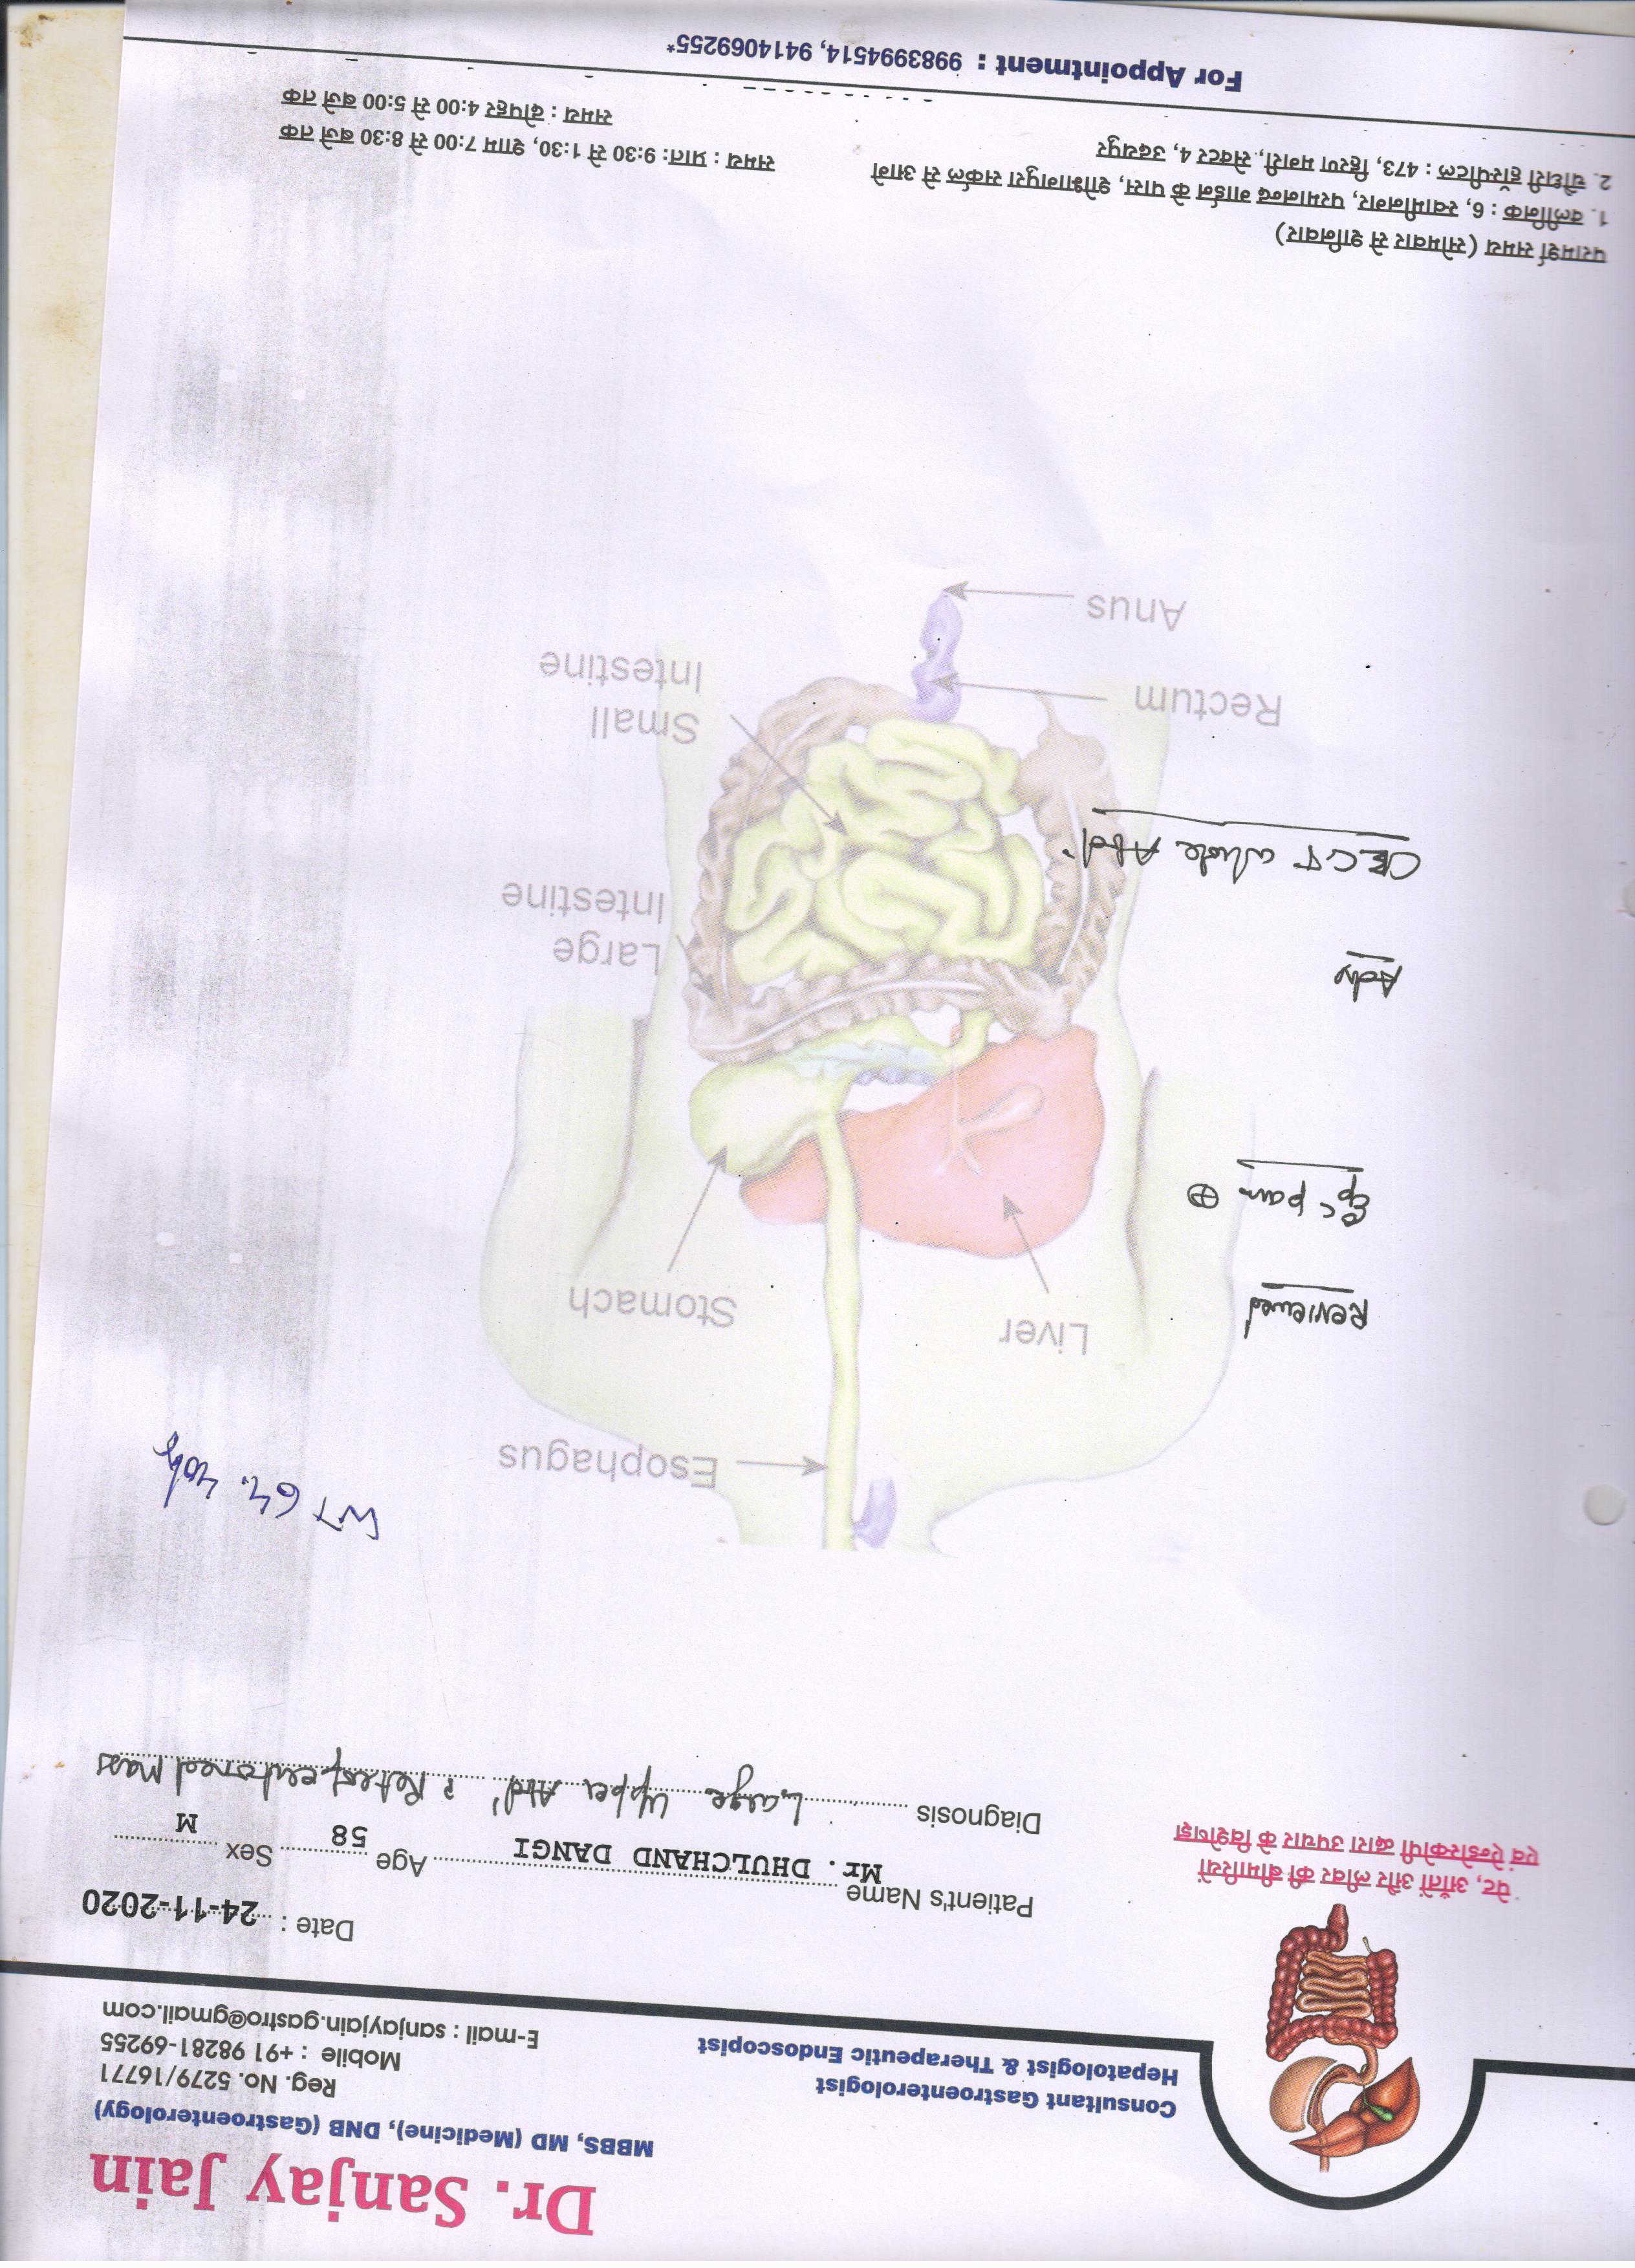 Dr. Sanjay Jain
MBBS, MD (Medicine), DNB (Gastroenterology)
Reg. No. 5279/16771
Mobile : +91 98281-69255
E-mail : sanjayjain.gastro@gmail.com
Consultant Gastroenterologist
Hepatologist & Therapeutic Endoscopist
पेट, आँतों और लीवर की बीमारियों
एवं ऐन्डोस्कोपी द्वारा उपचार के विशेषज्ञ
Date : 24-11-2020
Patient's Name Mr. DHULCHAND DANGI Age 58 Sex M
Diagnosis Large Upper Abd' ? Retroperitoneal Mass
WT 64.40kg
Esophagus
Liver
Stomach
Reviewed
pain ⊕
Adv
Large
Intestine
CECT whole Abd'
Small
Intestine
Rectum
Anus
परामर्श समय (सोमवार से शनिवार)
1. क्लीनिक : 6, स्वामीनगर, परमानन्द गार्डन के पास, शोभागपुरा सर्कल से आगे
समय : प्रातः 9:30 से 1:30, शाम 7:00 से 8:30 बजे तक
2. चौधरी हॉस्पीटल : 473, हिरण मगरी, सेक्टर 4, उदयपुर
समय : दोपहर 4:00 से 5:00 बजे तक
For Appointment : 9983994514, 9414069255*